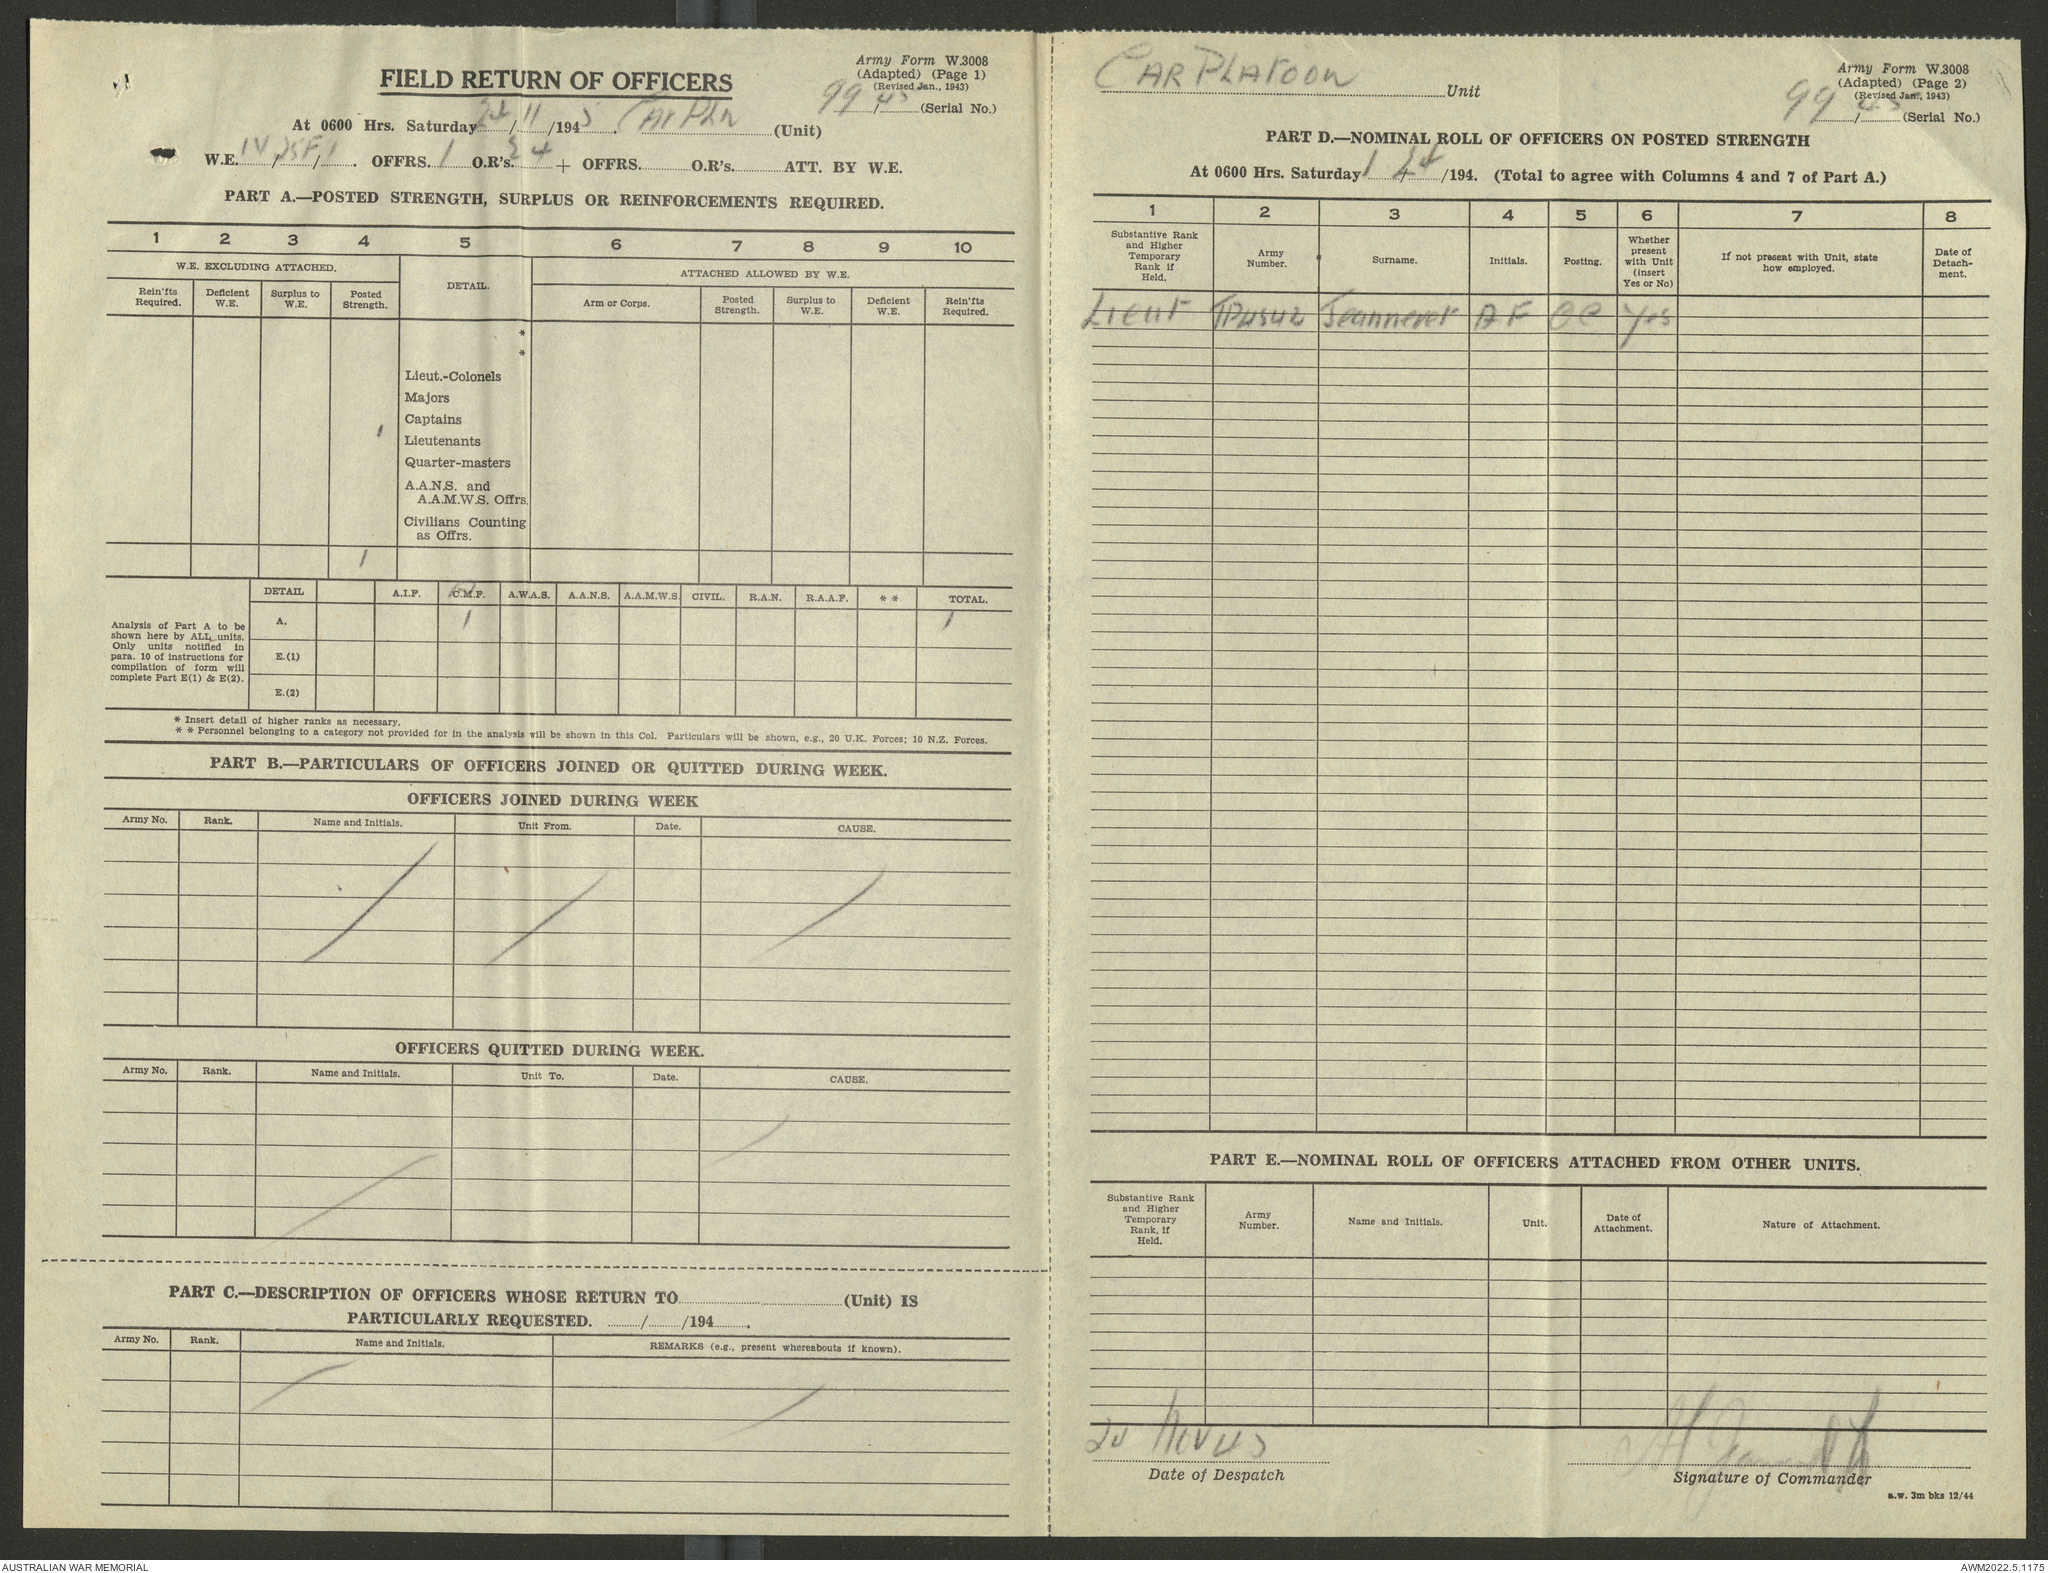 Army Form W.3008
(Adapted) (Page 1)
(Revised Jan., 1943)
FIELD RETURN OF OFFICERS
99/45 (Serial No.)
At 0600 Hrs. Saturday 24/11/1945. Car Pln (Unit)
W.E. IV/25F/1. OFFRS. 1 O.R's. 34 + OFFRS. O.R's. ATT. BY W.E.
PART A.—POSTED STRENGTH, SURPLUS OR REINFORCEMENTS REQUIRED.
1 2 3 4 5 6 7 8 9 10
W.E. EXCLUDING ATTACHED. DETAIL. ATTACHED ALLOWED BY W.E.
Rein'fts Required. Deficient W.E. Surplus to W.E. Posted Strength. Arm or Corps. Posted Strength. Surplus to W.E. Deficient W.E. Rein'fts Required.
*
*
Lieut.-Colonels
Majors
Captains
1 Lieutenants
Quarter-masters
A.A.N.S. and
A.A.M.W.S. Offrs.
Civilians Counting
as Offrs.
1
DETAIL A.I.F. C.M.F. A.W.A.S. A.A.N.S. A.A.M.W.S. CIVIL. R.A.N. R.A.A.F. * * TOTAL.
A. 1 1
E.(1)
E.(2)
Analysis of Part A to be
shown here by ALL units.
Only units notified in
para. 10 of instructions for
compilation of form will
complete Part E(1) & E(2).
* Insert detail of higher ranks as necessary.
* * Personnel belonging to a category not provided for in the analysis will be shown in this Col. Particulars will be shown, e.g., 20 U.K. Forces; 10 N.Z. Forces.
PART B.—PARTICULARS OF OFFICERS JOINED OR QUITTED DURING WEEK.
OFFICERS JOINED DURING WEEK
Army No. Rank. Name and Initials. Unit From. Date. CAUSE.
OFFICERS QUITTED DURING WEEK.
Army No. Rank. Name and Initials. Unit To. Date. CAUSE.
PART C.—DESCRIPTION OF OFFICERS WHOSE RETURN TO (Unit) IS
PARTICULARLY REQUESTED. / /194 .
Army No. Rank. Name and Initials. REMARKS (e.g., present whereabouts if known).
CAR PLATOON Unit
Army Form W.3008
(Adapted) (Page 2)
(Revised Jan., 1943)
99/45 (Serial No.)
PART D.—NOMINAL ROLL OF OFFICERS ON POSTED STRENGTH
At 0600 Hrs. Saturday /194. (Total to agree with Columns 4 and 7 of Part A.)
1 2 3 4 5 6 7 8
Substantive Rank and Higher Temporary Rank if Held. Army Number. Surname. Initials. Posting. Whether present with Unit (insert Yes or No) If not present with Unit, state how employed. Date of Detachment.
Lieut Jeanneret A F OC Yes
PART E.—NOMINAL ROLL OF OFFICERS ATTACHED FROM OTHER UNITS.
Substantive Rank and Higher Temporary Rank, if Held. Army Number. Name and Initials. Unit. Date of Attachment. Nature of Attachment.
24 Nov 45
Date of Despatch
Signature of Commander
a.w. 3m bks 12/44
AUSTRALIAN WAR MEMORIAL
AWM2022.5.1175